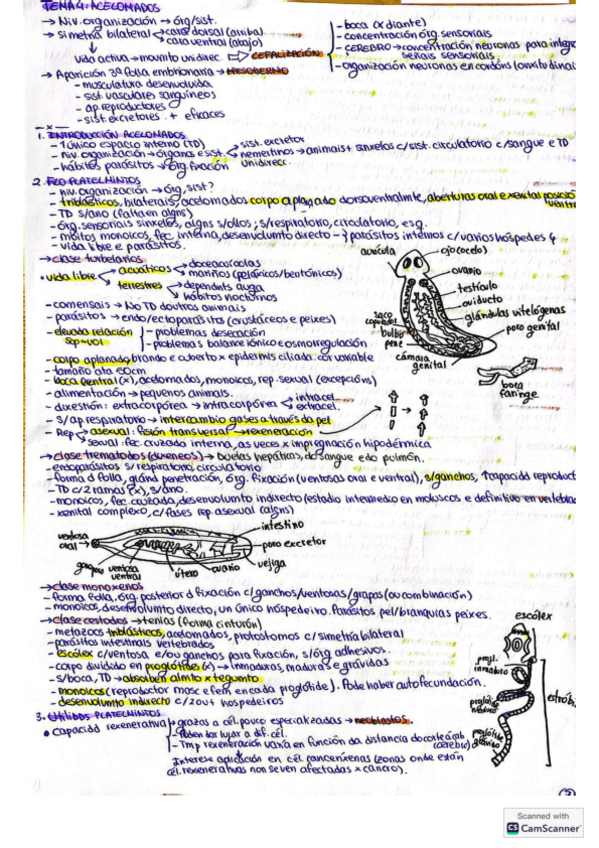 TEMA 4: ACELOMADOS
→ Niv. organización → órg/sist.
→ Simetría bilateral → cara dorsal (arriba)
cara ventral (abajo)
vida activa → movmto unidirec. ⇒ CEFALIZACIÓN
- boca (x diante)
- concentración órg sensoriais
- CEREBRO → concentración neuronas para integr
señais sensoriais.
- organización neuronas en cordóns lonxitudinais
→ Aparición 3ª folla embrionaria → MESODERMO
- musculatura desenvolvida
- sist. vasculares sanguíneos
- ap. reproductores
- sist. excretores + eficaces
-x-
1. INTRODUCIÓN ACELOMADOS
- 1 único espazo interno (TD)
- Niv. organización → órganos e sist.
sist. excretor
nemertinos → animais + sinxelos c/sist. circulatorio c/sangue e TD
- hábitos parásitos → órg. fixación
unidirecc.
2. FILO PLATELMINTOS
- niv. organización → órg, sist?
- triblásticos, bilaterais, acelomados, corpo aplanado dorsoventralmte, aberturas oral e xenital posició
ventra
- TD s/ano (falta en algns)
- órg. sensoriais sinxelos, algns s/ollos; s/respiratorio, circulatorio, esq.
- moitos monoicos, fec. interna, desenvolvmto directo - } parásitos internos c/varios hóspedes
- vida libre e parásitos.
→ clase turbelarios
• vida libre
acuáticos
doceacuícolas
mariños (peláxicos/bentónicos)
terrestres
dependnts auga
hábitos nocturnos
- comensais → No TD doutros animais
- parásitos → endo/ectoparásitos (crustáceos e peixes)
- elevada relación
sup-vol
- problemas desecación
- problemas balance iónico e osmorregulación
- corpo aplanado, brando e cuberto x epidermis ciliada. cor variable
- tamaño ata 50cm
- boca ventral (x), acelomados, monoicos, rep. sexual (excepcións)
- alimentación → pequenos animais.
- dixestión: extracorpórea → intracorpórea
intracel
extracel.
- s/ap respiratorio → intercambio gases a través da pel
- Rep
asexual: fisión transversal → rexeneración
sexual: fec. cruzada interna, as veces x impregnación hipodérmica
aurícula
ojo (ocelo)
ovario
testículo
oviducto
glándulas vitelógenas
poro genital
saco copulador
bulbo
pene
cámara genital
boca
faringe
→ clase trematodos (dixeneos) → Duelas hepáticas, do sangue e do pulmón.
- endoparásitos s/respiratorio, circulatorio
- forma d folla, gland penetración, órg. fixación (ventosas oral e ventral), s/ganchos, ↑ capacidd reproduct
- TD c/2 ramas (x), s/ano.
- monoicos, fec. cruzada, desenvolvmto indirecto (estadio intermedio en moluscos e definitivo en vertebra
- xenital complexo, c/fases rep. asexual (algns)
ventosa oral
ventosa ventral
útero
ovario
vejiga
intestino
poro excretor
→ clase monoxenos
- forma folla, órg. posterior d fixación c/ganchos/ventosas/grapas (ou combinación)
- monoicos, desenvolvmto directo, un único hospedeiro. Parásitos pel/branquias peixes.
→ clase cestodos → tenias (forma cinturón)
- metazoos triblásticos, acelomados, protostomos c/simetría bilateral
- parásitos intestinais vertebrados
- escólex c/ventosa e/ou ganchos para fixación, s/órg adhesivos.
- corpo dividido en proglótides (x) → inmaduras, maduras e grávidas
- s/boca, TD → absorben almto x tegumto
- monoicos (reproductor masc e fem en cada proglótide). Pode haber autofecundación.
- desenvolvmto indirecto c/2 ou + hospedeiros
escólex
progl. inmaduro
proglótide maduro
proglótide grávido
estrób
3. Utilidds PLATELMINTOS
• capacidd rexenerativa
grazas a cél. pouco especializadas → neoblastos.
- Poden dar lugar a dif. cél.
- Tmp rexeneración varía en función da distancia do corte á cab (cerebro)
Interese aplicación en cél. canceríxenas (zonas onde están
cél. rexenerativas non se ven afectadas x cancro).
Scanned with
CS CamScanner